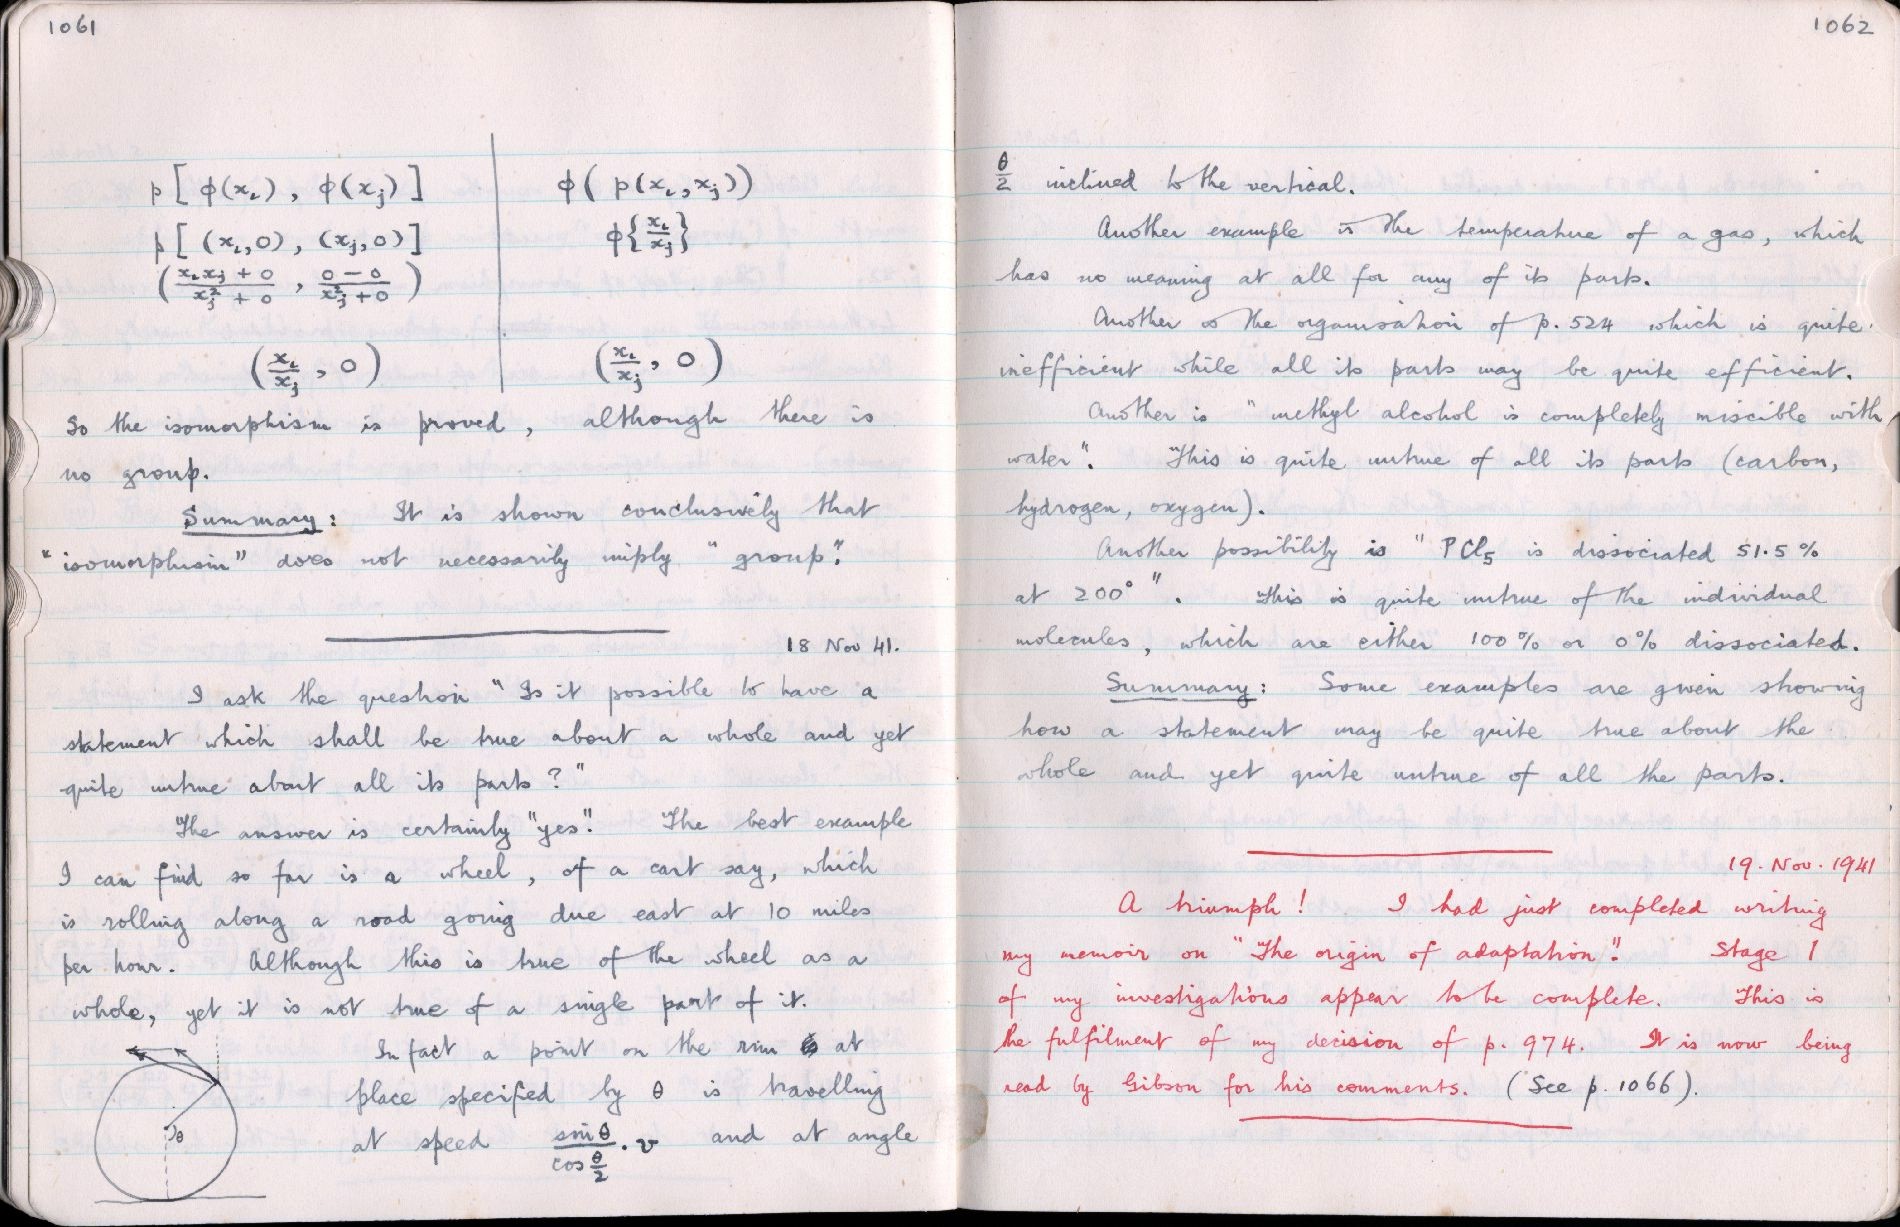 1061
p[ϕ(xᵢ), ϕ(xⱼ)] | ϕ(p(xᵢ, xⱼ))
p[(xᵢ,0), (xⱼ,0)] | ϕ{xᵢ/xⱼ}
((xᵢxⱼ + 0)/(xⱼ² + 0), (0 − 0)/(xⱼ² + 0))
(xᵢ/xⱼ, 0) | (xᵢ/xⱼ, 0)
So the isomorphism is proved, although there is
no group.
Summary: It is shown conclusively that
"isomorphism" does not necessarily imply "group".
18 Nov 41.
I ask the question "Is it possible to have a
statement which shall be true about a whole and yet
quite untrue about all its parts?"
The answer is certainly "yes". The best example
I can find so far is a wheel, of a cart say, which
is rolling along a road going due east at 10 miles
per hour. Although this is true of the wheel as a
whole, yet it is not true of a single part of it.
In fact a point on the rim at
place specified by θ is travelling
at speed sin θ/cos θ/2 . v and at angle
θ
1062
θ/2 inclined to the vertical.
Another example is the temperature of a gas, which
has no meaning at all for any of its parts.
Another is the organisation of p. 524 which is quite
inefficient while all its parts may be quite efficient.
Another is "methyl alcohol is completely miscible with
water". This is quite untrue of all its parts (carbon,
hydrogen, oxygen).
Another possibility is "PCl₅ is dissociated 51.5%
at 200°". This is quite untrue of the individual
molecules, which are either 100% or 0% dissociated.
Summary: Some examples are given showing
how a statement may be quite true about the
whole and yet quite untrue of all the parts.
19. Nov. 1941
A triumph! I had just completed writing
my memoir on "The origin of adaptation". Stage 1
of my investigations appear to be complete. This is
the fulfilment of my decision of p. 974. It is now being
read by Gibson for his comments. (See p. 1066).